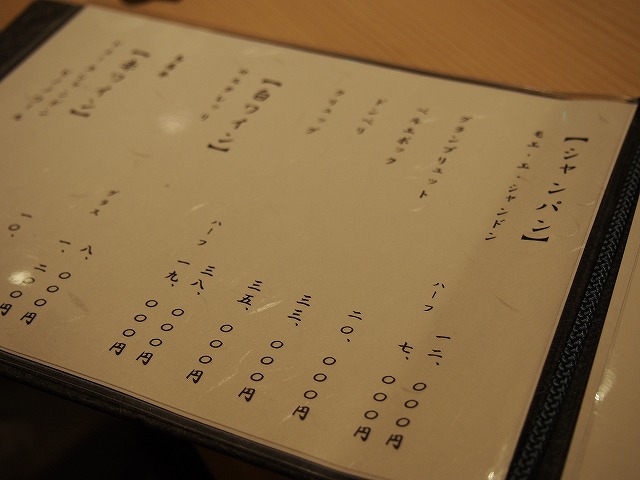 【シャンパン】
モエ・エ・シャンドン 一二、〇〇〇円
ハーフ 七、〇〇〇円
ブランブリュット 二〇、〇〇〇円
ベルエポック 三三、〇〇〇円
ドンペリ 三五、〇〇〇円
クリュッグ 三八、〇〇〇円
ハーフ 一九、〇〇〇円
【白ワイン】
八、〇〇〇円
グラス 一、二〇〇円
【赤ワイン】
一〇、